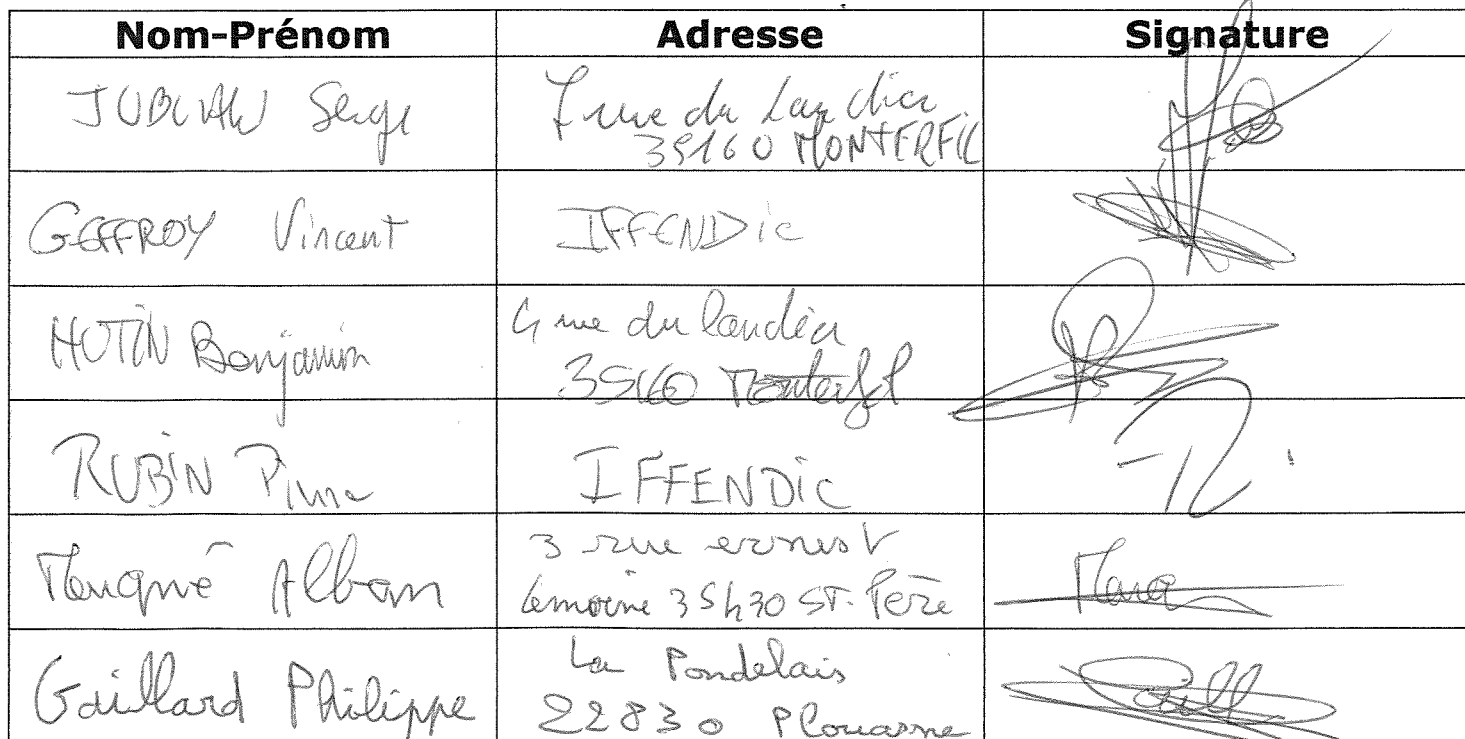 Nom-Prénom Adresse Signature
Serge 7 rue du Landier
35160 MONTERFIL
GEFFROY Vincent IFFENDic
HOTIN Benjamin 4 rue du landier
35160 Monterfil
RUBIN Pierre IFFENDic
Alban 3 rue ernest
Lemoine 35430 ST. Père
Gaillard Philippe La Pondelais
22830 Plouasne